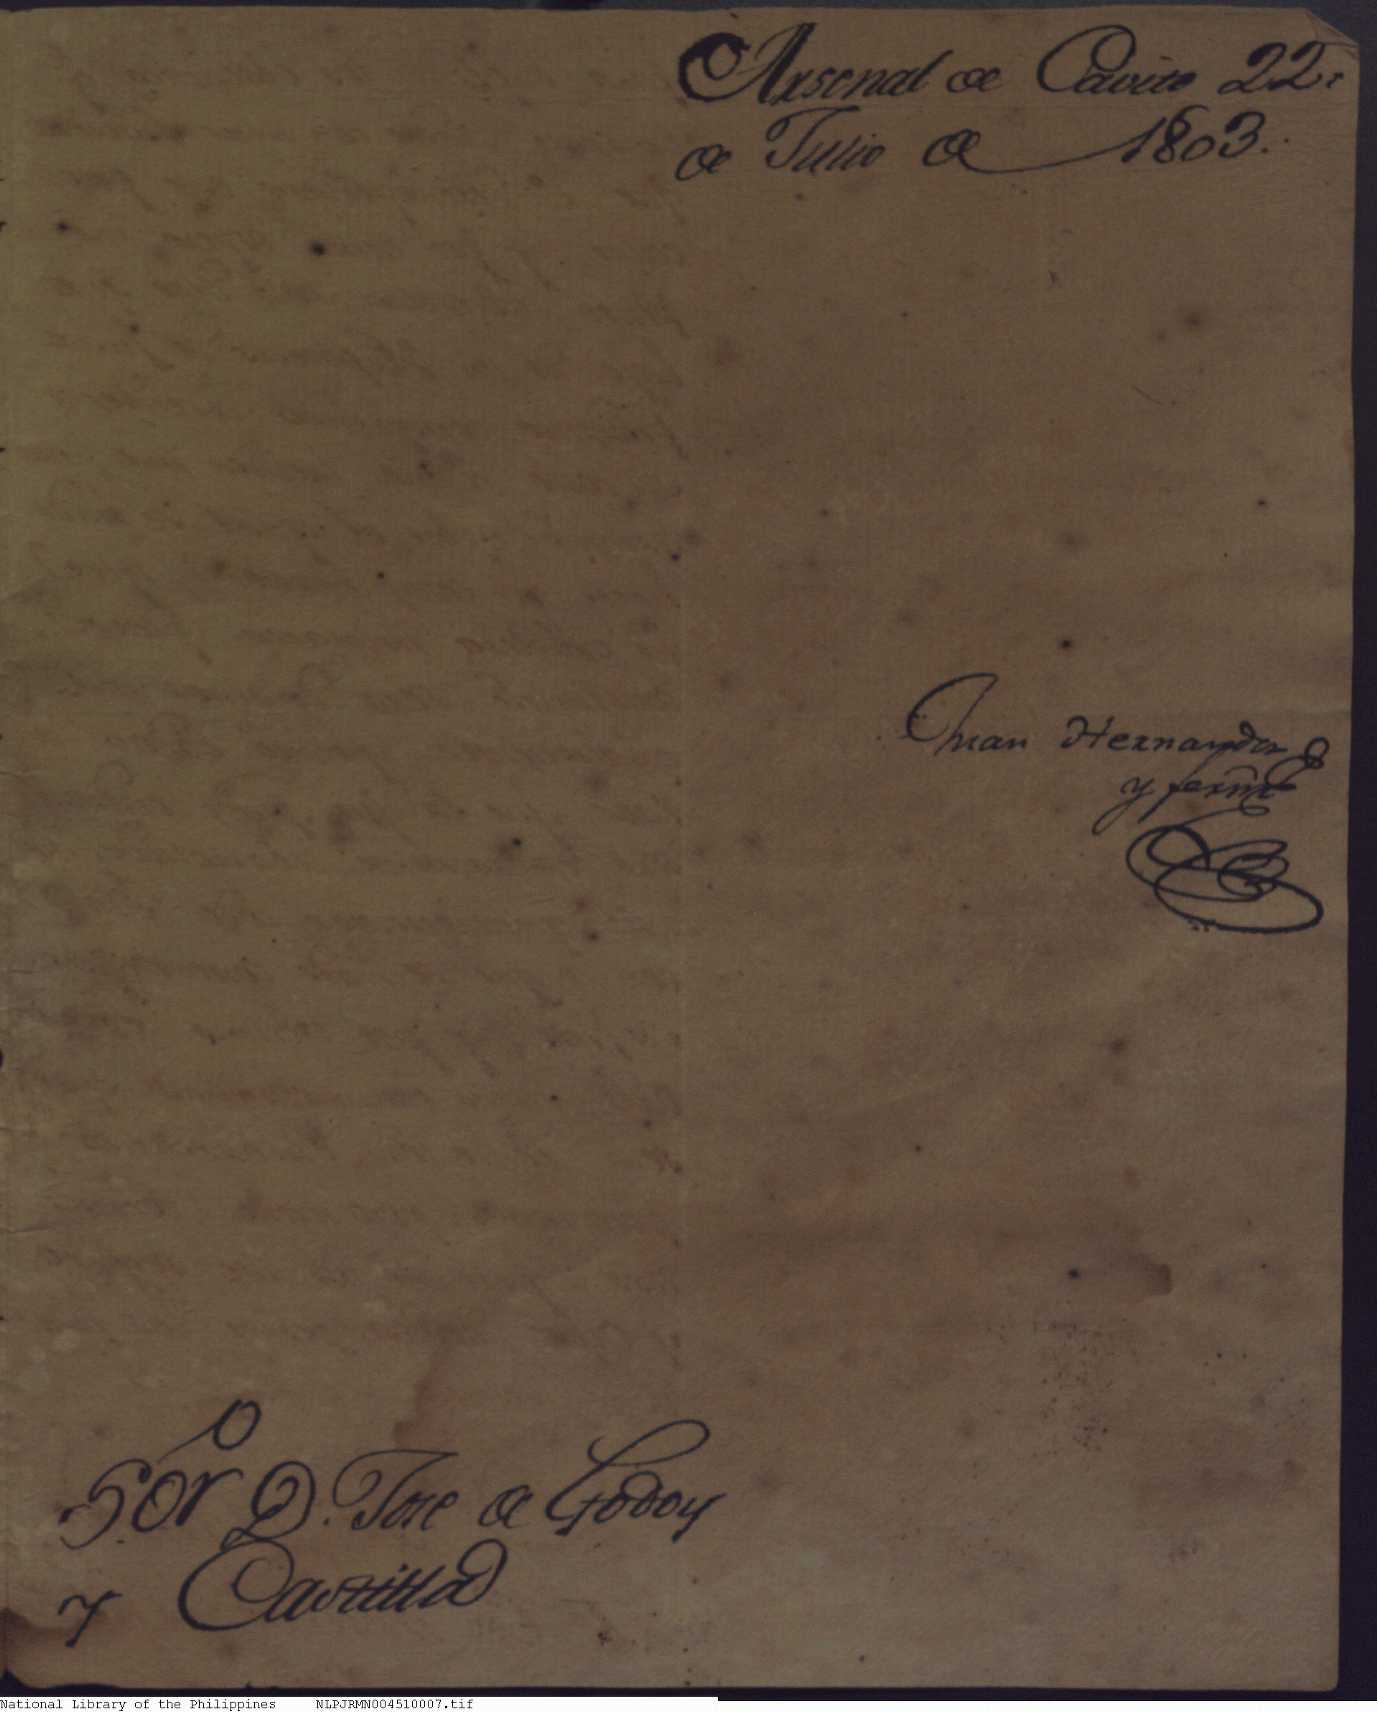 Arsenal de Cavite 22.
de Julio de 1803.
Juan Hernandez
y
Sor D. Jose de Godoy
y Castilla
National Library of the Philippines NLPJRMN004510007.tif